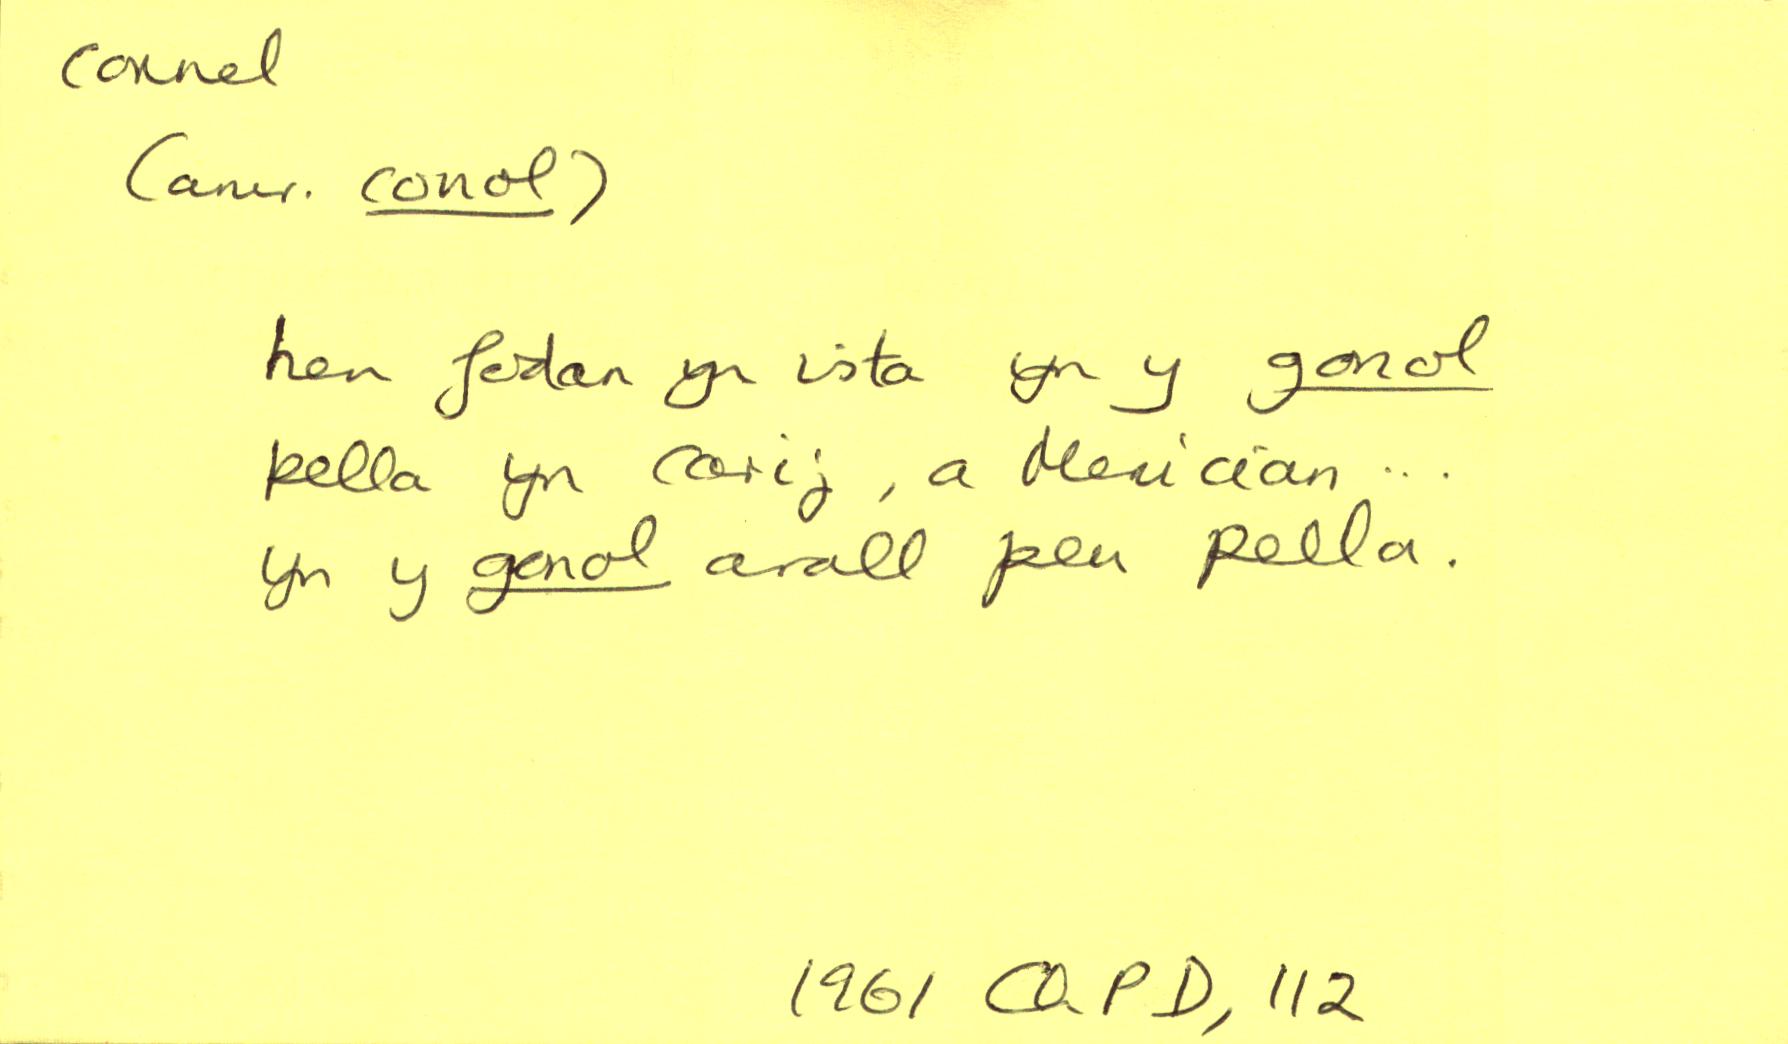 cornel
(amr. conol)
hen fodan yn ista yn y gonol
pella yn carij, a Mexician ...
yn y gonol arall pen pella.
1961 CAPD, 112